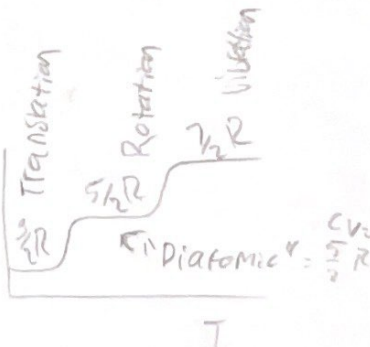 Translation
Rotation
Vibration
3/2R
5/2R
7/2R
"Diatomic" = Cv= 5/2 R
T